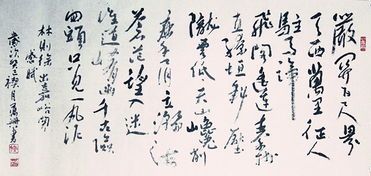 嚴關百尺界
天西萬里征人
駐馬蹄
飛閣遙連秦樹
直繚垣斜壓
隴雲低天山巉削
摩肩立瀚海
蒼茫望入迷
誰道崤函千古險
回頭只見一丸泥
林則徐出嘉峪關
感賦
歲次癸巳月書